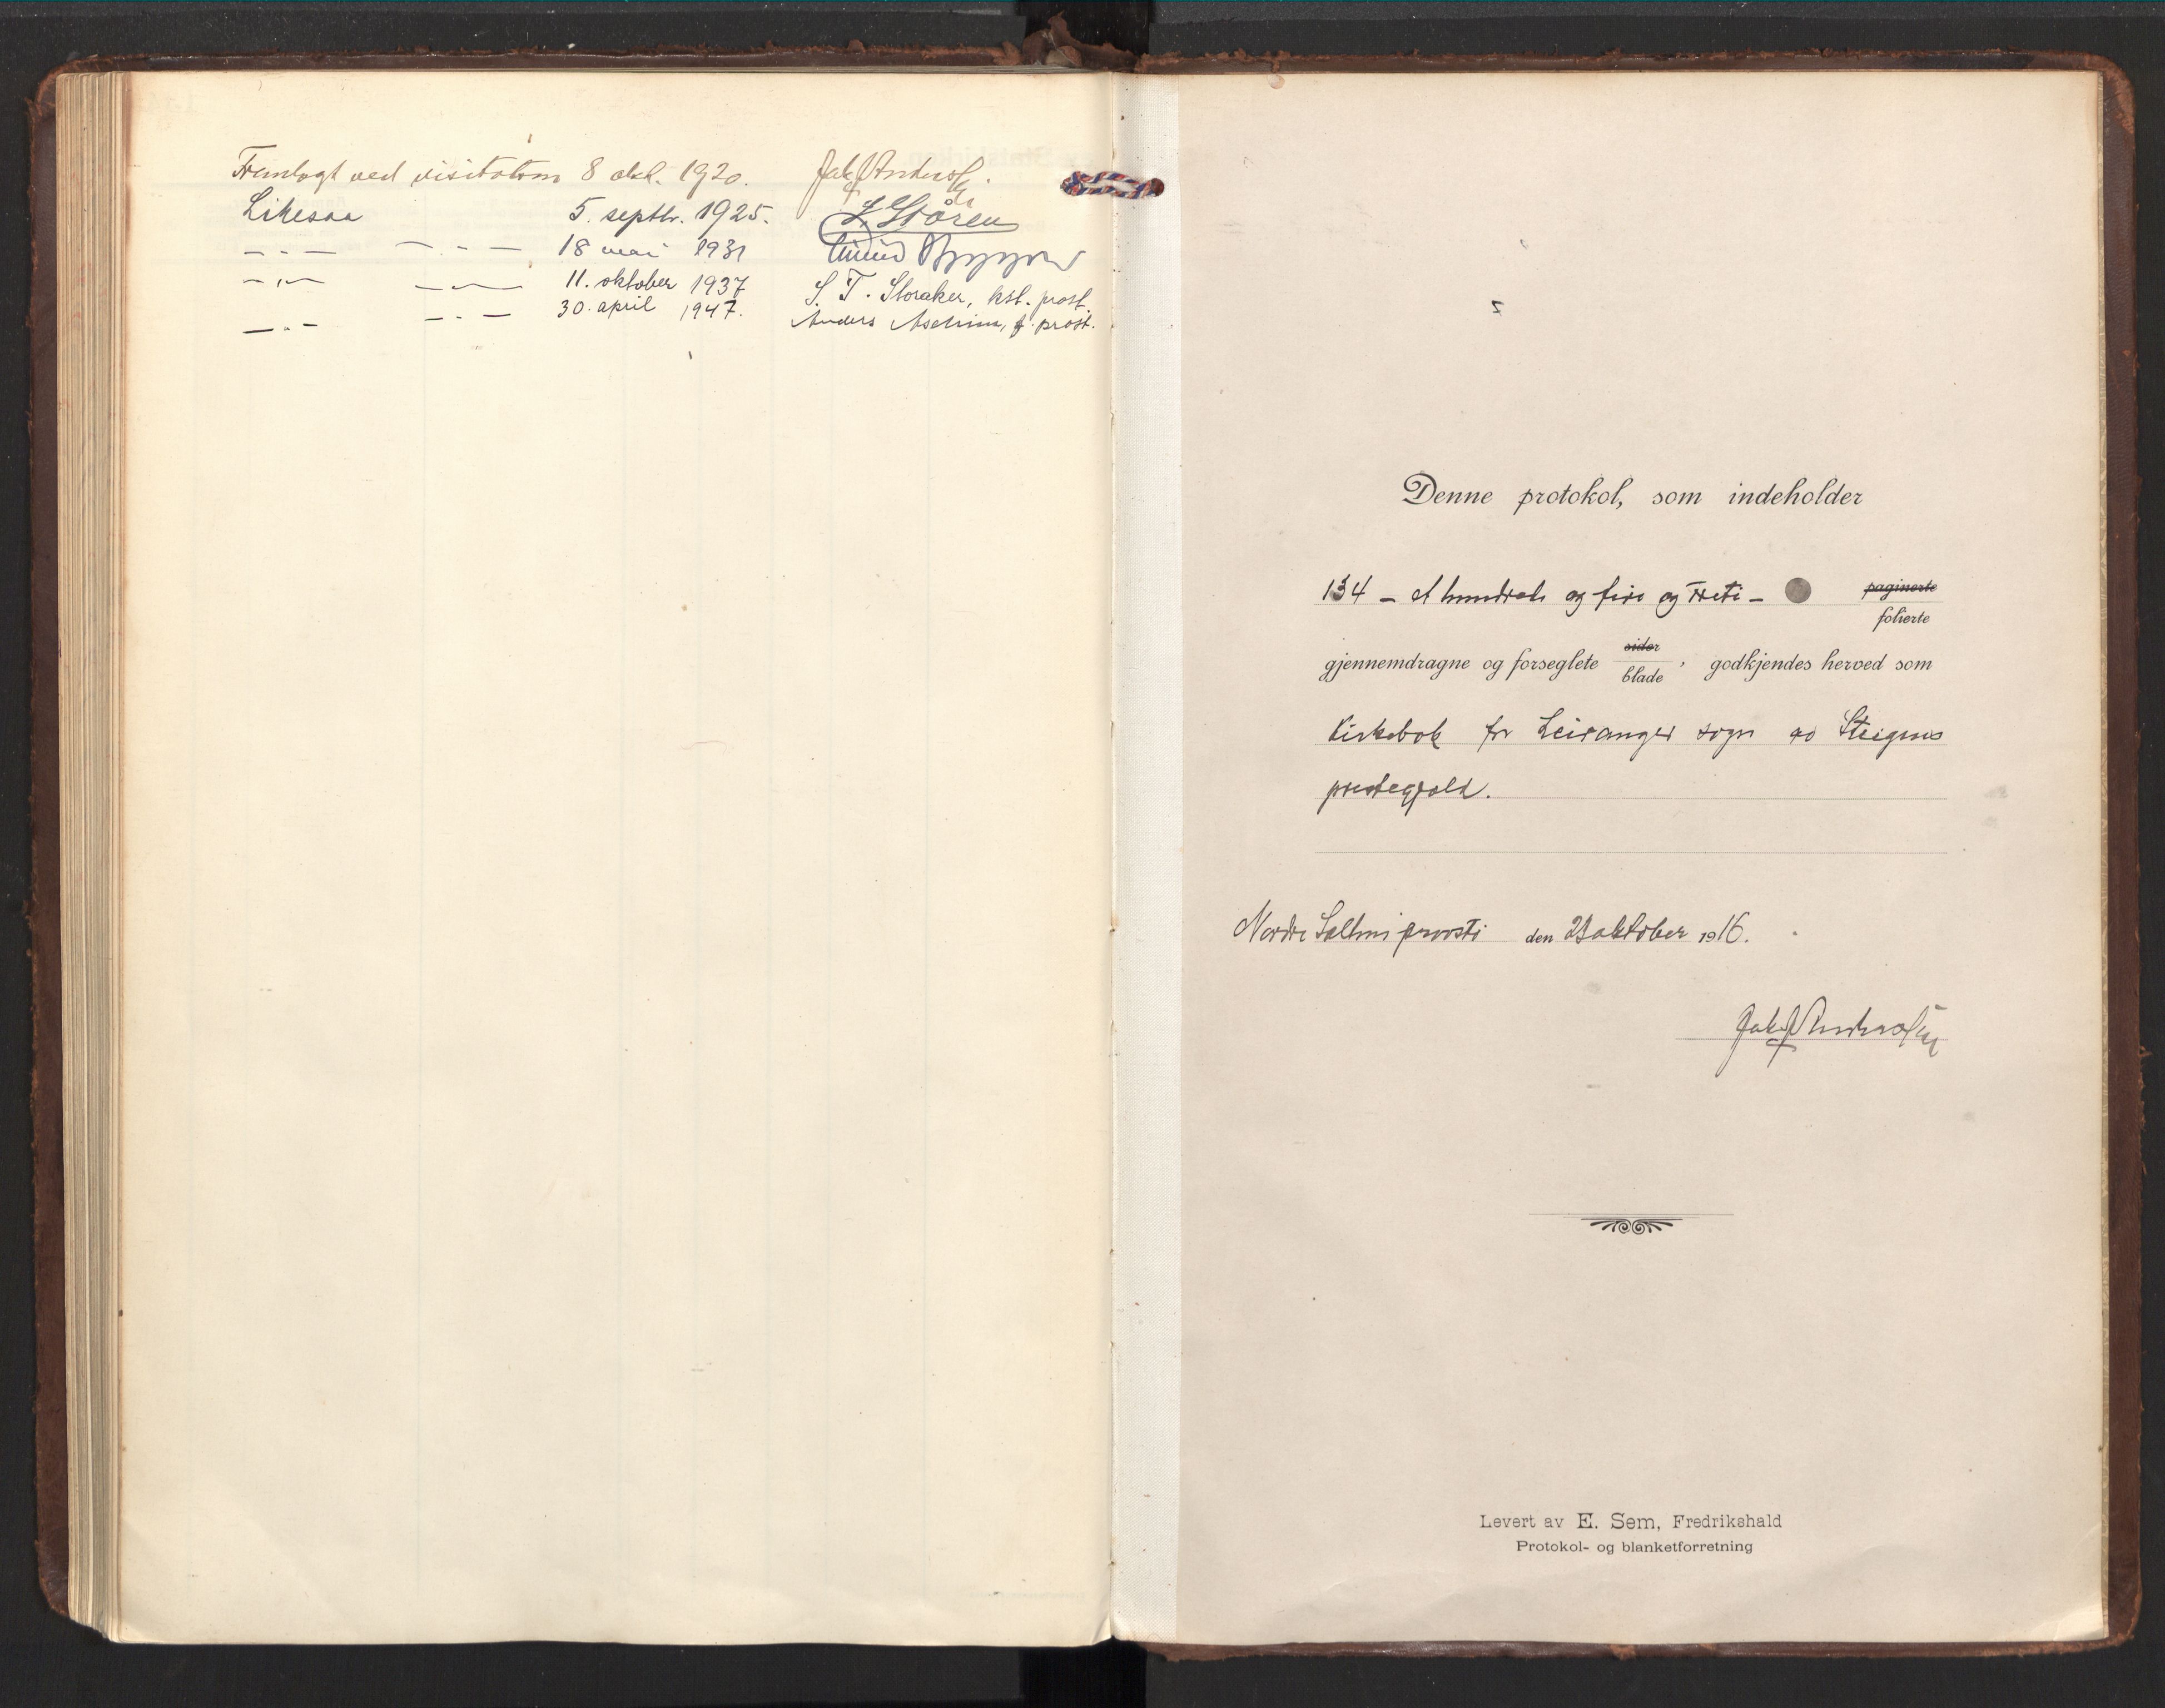 Fremlagt ved visitatsen 8 okt. 1920.
Likesaa 5. septbr. 1925. Støren
— " — — " — 18 mai 1931
— " — — " — 11. oktober 1937 S. T. Storaker, kst. prost
— " — — " — 30. april 1947. Anders Aschim, f. prost.
Denne protokol, som indeholder
134 – et hundrede og fire og treti – paginerte
folierte
gjennemdragne og forseglete sider
blade, godkjendes herved som
kirkebok for Leiranger sogn av Steigens
prestegjeld.
Nordre Salten provsti den oktober 1916.
Levert av E. Sem, Fredrikshald
Protokol- og blanketforretning